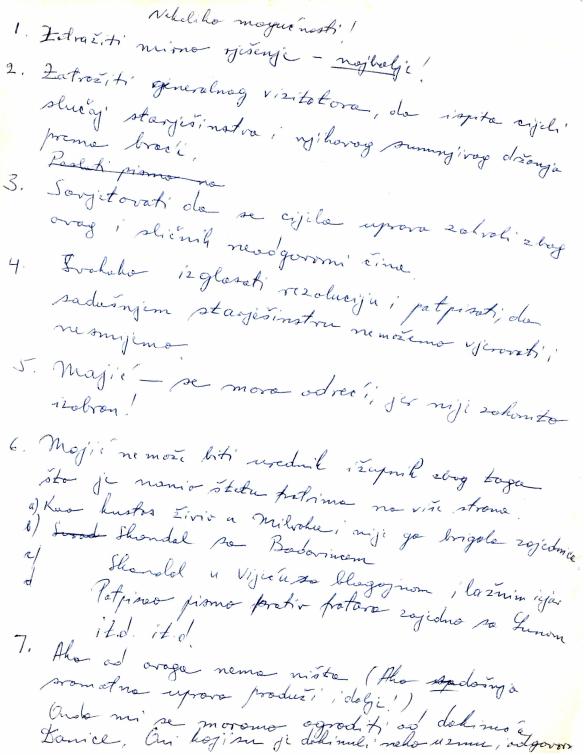 Nekoliko mogućnosti!
1. Zatražiti mirno rješenje – najbolje!
2. Zatražiti generalnog vizitatora, da ispita cijeli
slučaj starješinstva i njihovog sumnjivog držanja
prema braći.
Poslati pismo na
3. Savjetovati da se cijela uprava zahvali zbog
ovog i sličnih neodgovorni čina.
4. Svakako izglasati rezoluciju i patpisati, da
sadašnjem starješinstvu nemožemo vjerovati i
nesmijemo.
5. Majić – se mora odreći, jer niji zakonito
izabran!
6. Majić nemože biti urednik i župnik zbog toga
što je nanio štetu fratrima na više strana
a) Kao kustos živio u Milvoku i nije ga brigala zajednica
b) Skandal sa Badovincem
c) Skandal u Vijeću sa blagajnom i lažnim
d Patpisao pismo protiv fratara zajedno sa
it.d. it.d.
7. Ako od ovoga nema ništa (Ako sadašnja
sramotna uprava produži i dalje!)
Onda mi se moramo ograditi od
Danice, Oni koji su je neka uzmu i odgovor